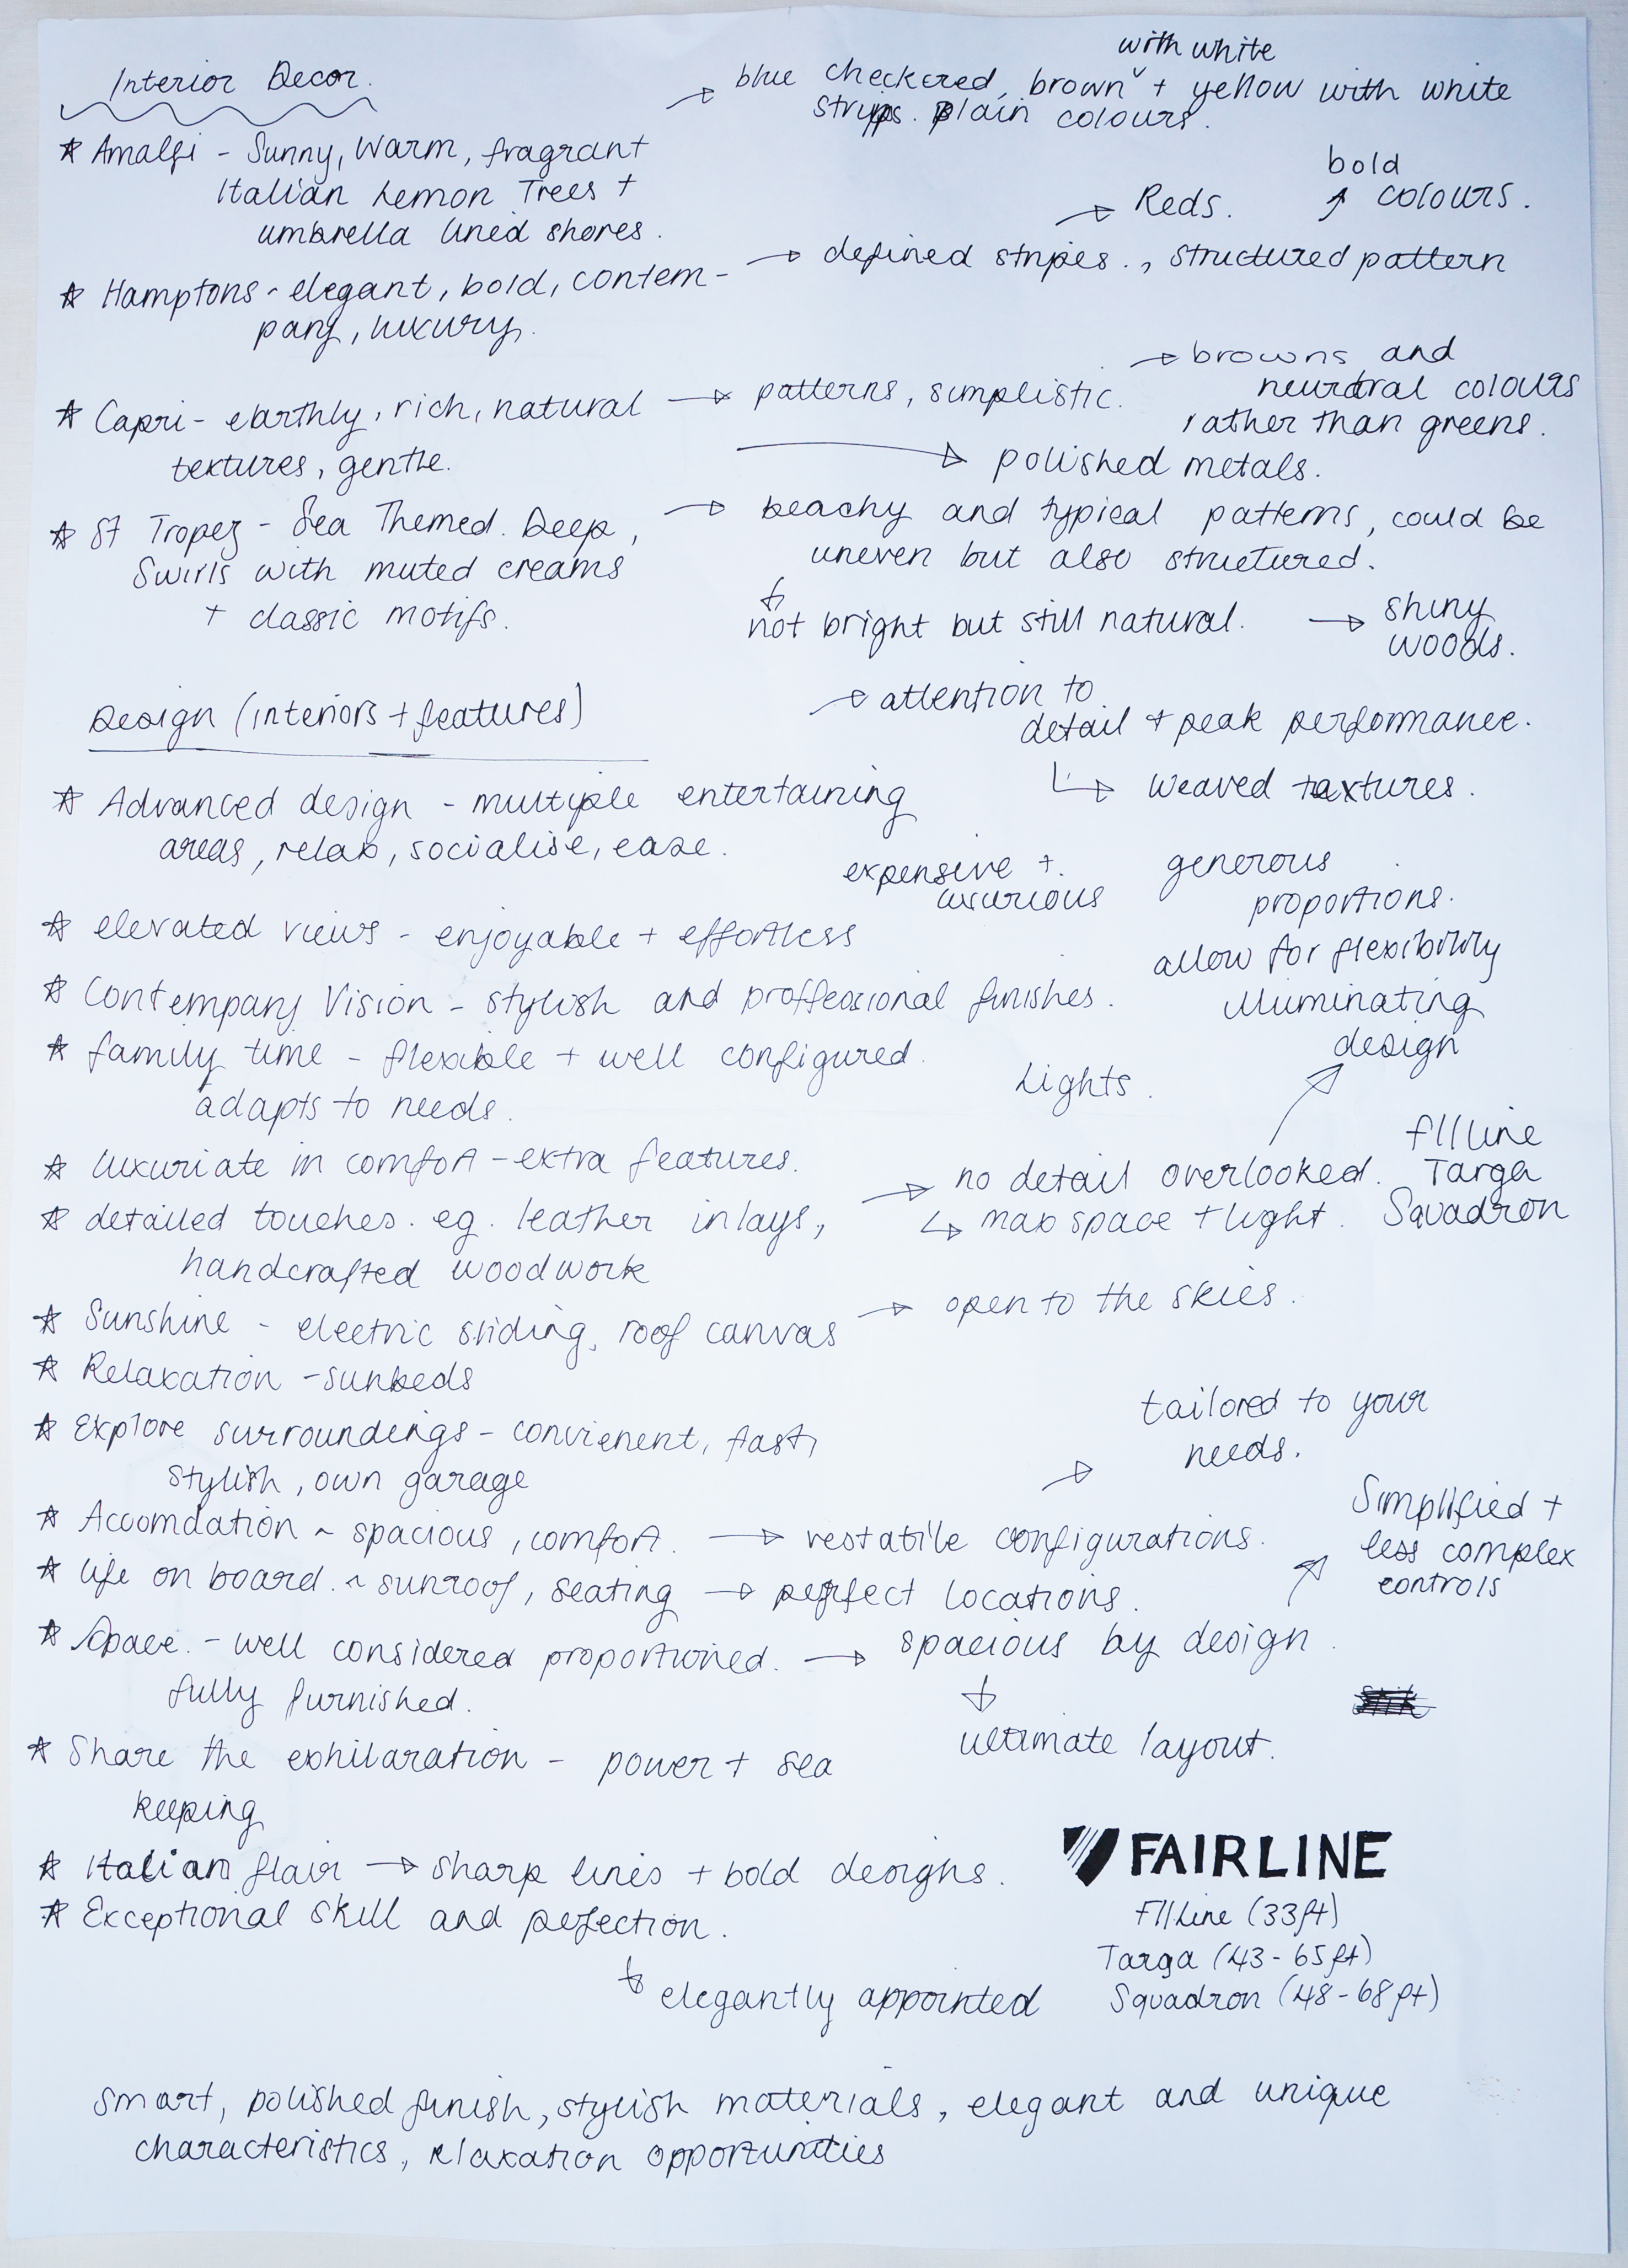 Interior Decor.
with white
blue checkered, brown + yellow with white
strips. plain colours.
* Amalfi - Sunny, Warm, fragrant
Italian Lemon Trees +
umbrella lined shores.
bold
colours.
Reds.
defined stripes., structured pattern
* Hamptons - elegant, bold, contem-
pary, luxury.
browns and
neurtral colours
rather than greens.
* Capri - earthly, rich, natural
textures, gentle.
patterns, simplistic.
polished metals.
* St Tropez - Sea Themed. Deep,
Swirls with muted creams
+ classic motifs.
beachy and typical patterns, could be
uneven but also structured.
not bright but still natural.
shiny
woods.
Design (interiors + features)
attention to
detail + peak performance.
weaved textures.
* Advanced design - multiple entertaining
areas, relax, socialise, ease.
expensive +
luxurious
generous
proportions.
* elevated views - enjoyable + effortless
allow for flexibility
* Contempary Vision - stylish and proffessional finishes.
illuminating
design
* family time - flexible + well configured.
adapts to needs.
Lights.
* luxuriate in comfort - extra features.
F//Line
Targa
Squadron
* detailed touches. eg. leather inlays,
handcrafted woodwork
no detail overlooked.
max space + light.
* Sunshine - electric sliding, roof canvas
open to the skies.
* Relaxation - sunbeds
* Explore surroundings - convienent, fast,
stylish, own garage
tailored to your
needs.
* Accomdation ~ spacious, comfort.
verstatile configurations.
* life on board. ~ sunroof, seating
perfect locations.
Simplified +
less complex
controls
* Space. - well considered proportioned.
fully furnished.
spacious by design.
ultimate layout.
* Share the exhilaration - power + sea
keeping
* Italian flair → sharp lines + bold designs.
* Exceptional skill and perfection.
elegantly appointed
FAIRLINE
F//Line (33ft)
Targa (43-65ft)
Squadron (48-68ft)
smart, polished finish, stylish materials, elegant and unique
characteristics, relaxation opportunities